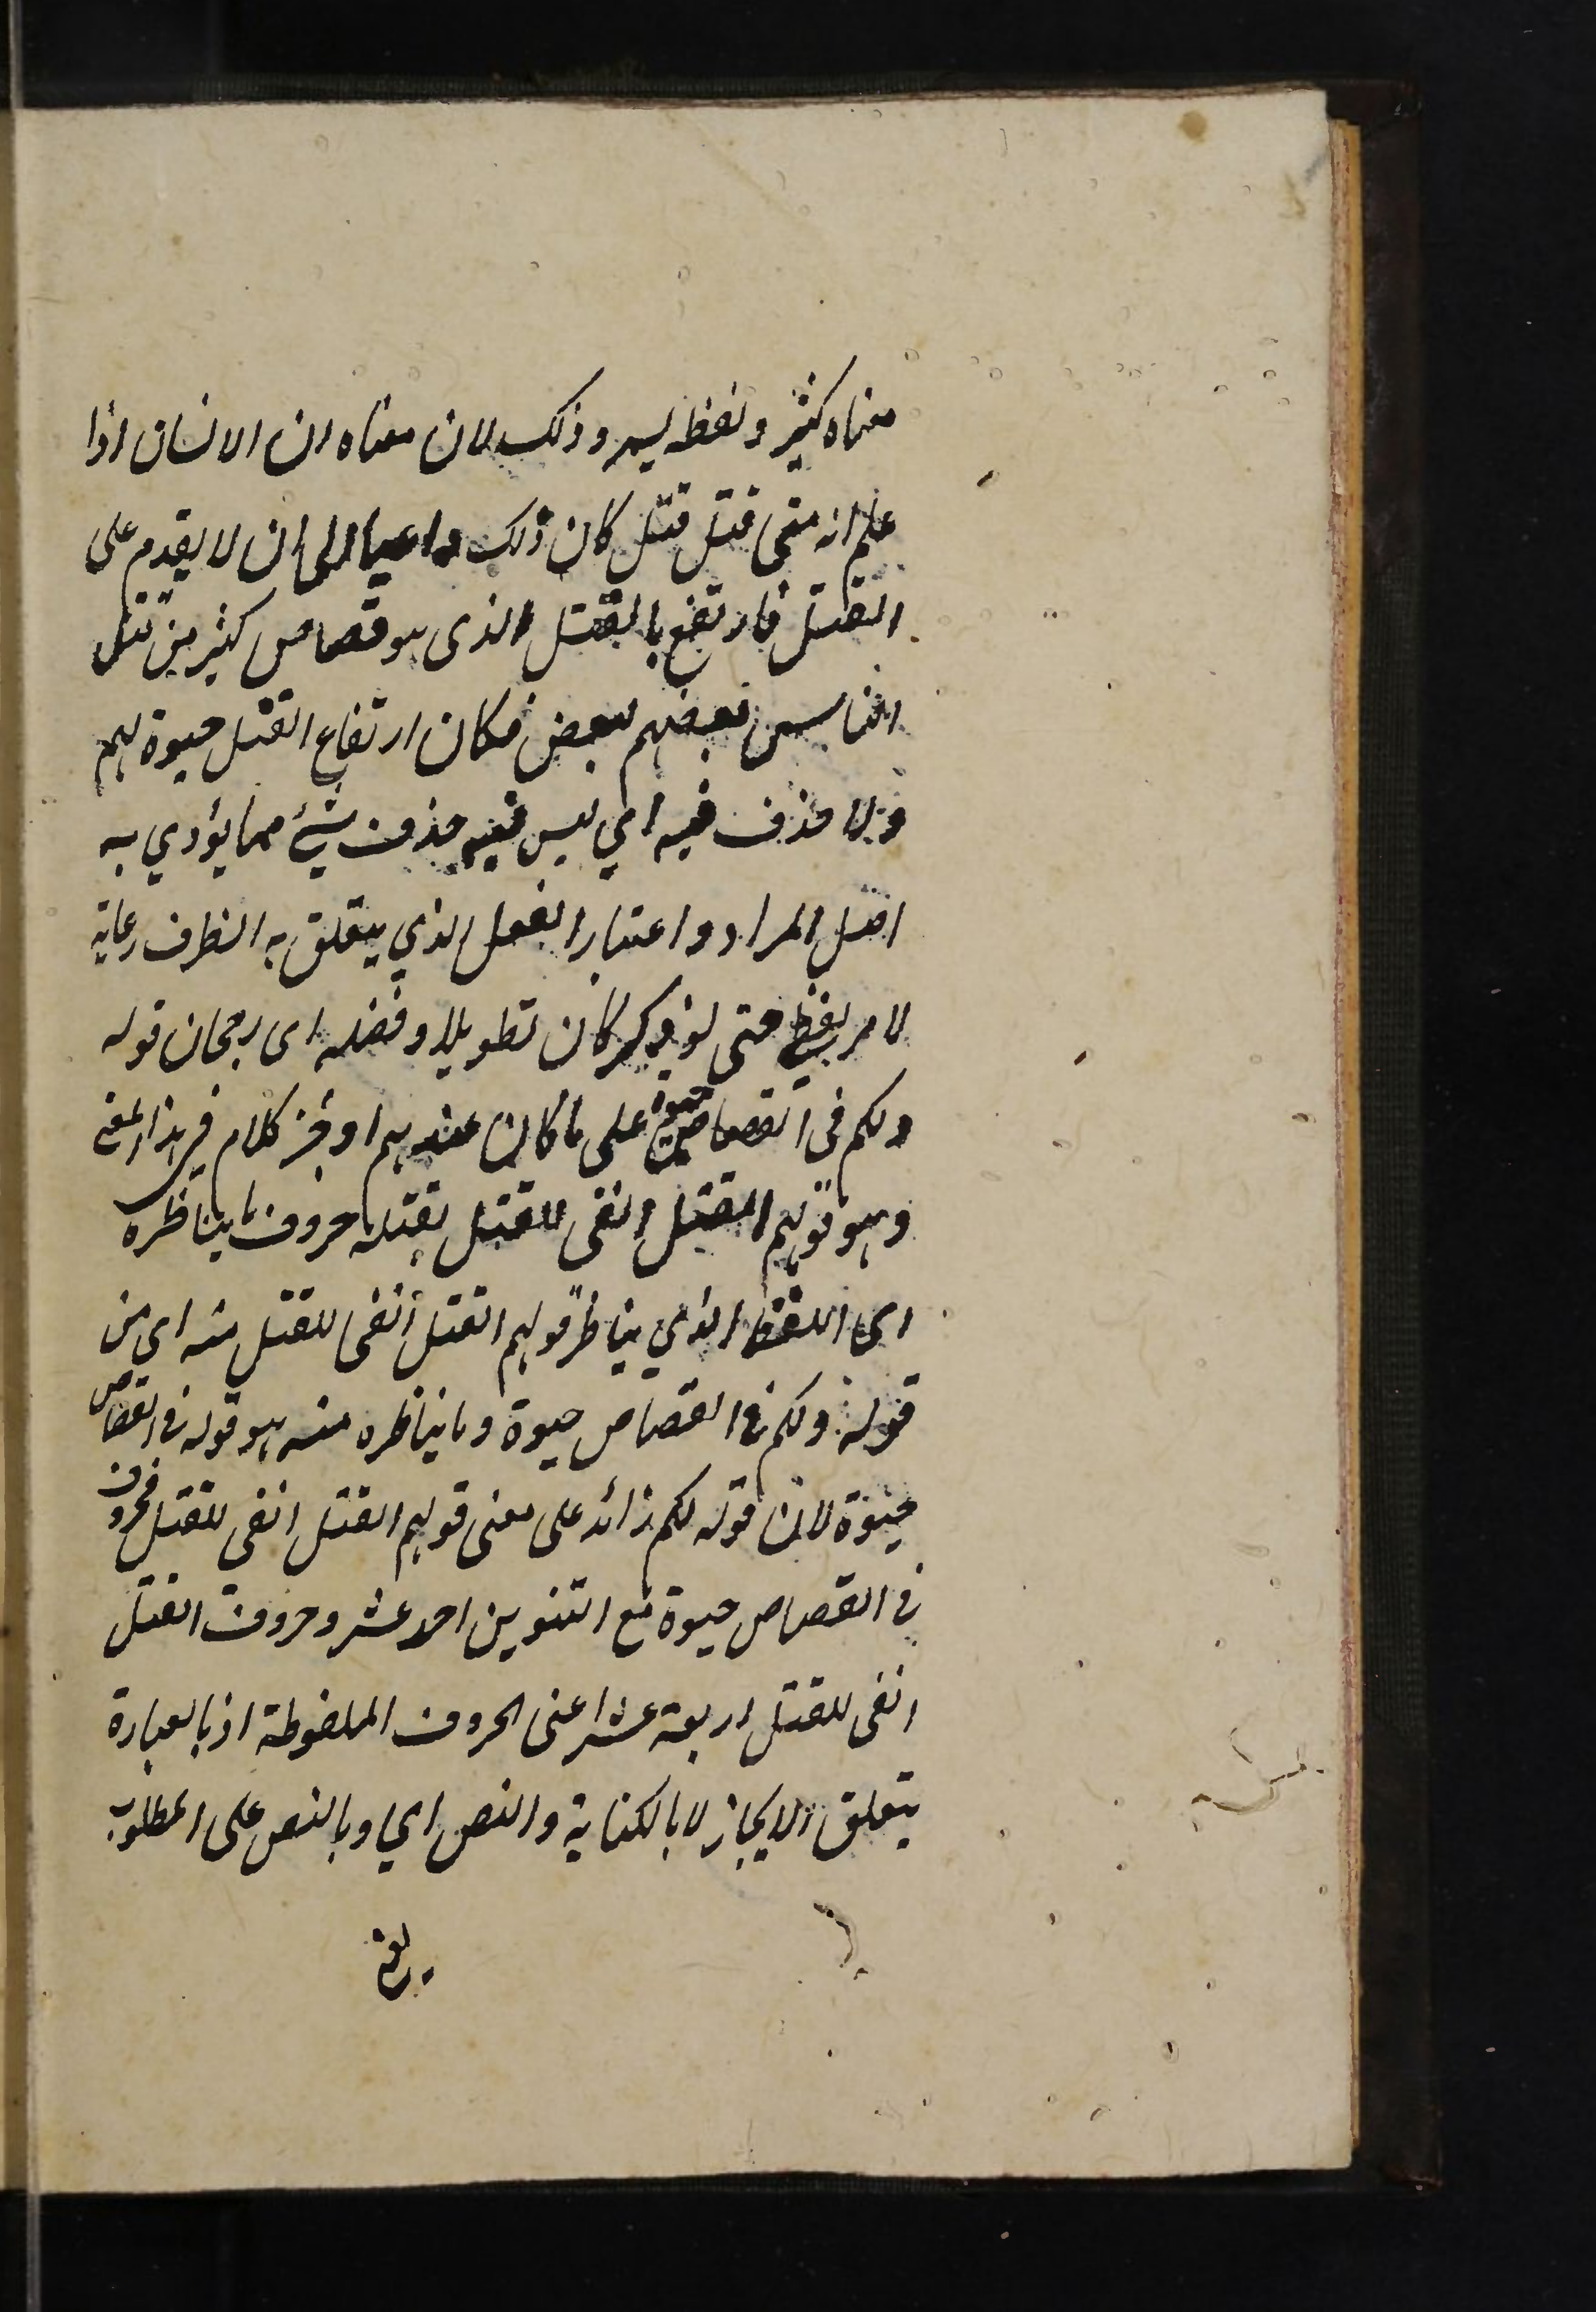 معناه كثير ولفظه يسير وذلك لان معناه ان الانسان اذا
علم انه متى قتل قتل كان ذلك داعيا الى ان لا يقدم على
القتل فارتفع بالقتل الذى هو قصاص كثير من قتل
الناس بعضهم لبعض فكان ارتفاع القتل حيوة لهم
ولا حذف فيه اي ليس فيه حذف شئ مما يؤدي به
اصل المراد واعتبار الفعل الذي يتعلق به الظرف رعاية
لامر لفظي حتى لو ذكر كان تطويلا وفضله اى رجحان قوله
ولكم فى القصاص حيوة على ما كان عندهم اوجز كلام في هذا المعنى
وهو قولهم القتل انفى للقتل بقتله حروف ما يناظره
اى اللفظ الذي يناظر قولهم القتل انفى للقتل منه اي من
قوله ولكم فى القصاص حيوة وما يناظره منه هو قوله فى القصاص
حيوة لان قوله لكم زائد على معنى قولهم القتل انفى للقتل فحروف
فى القصاص حيوة مع التنوين احد عشر وحروف القتل
انفى للقتل اربعة عشر اعنى الحروف الملفوظة اذ بالعبارة
يتعلق الايجاز لا بالكتابة والنص اي وبالنص على المطلوب